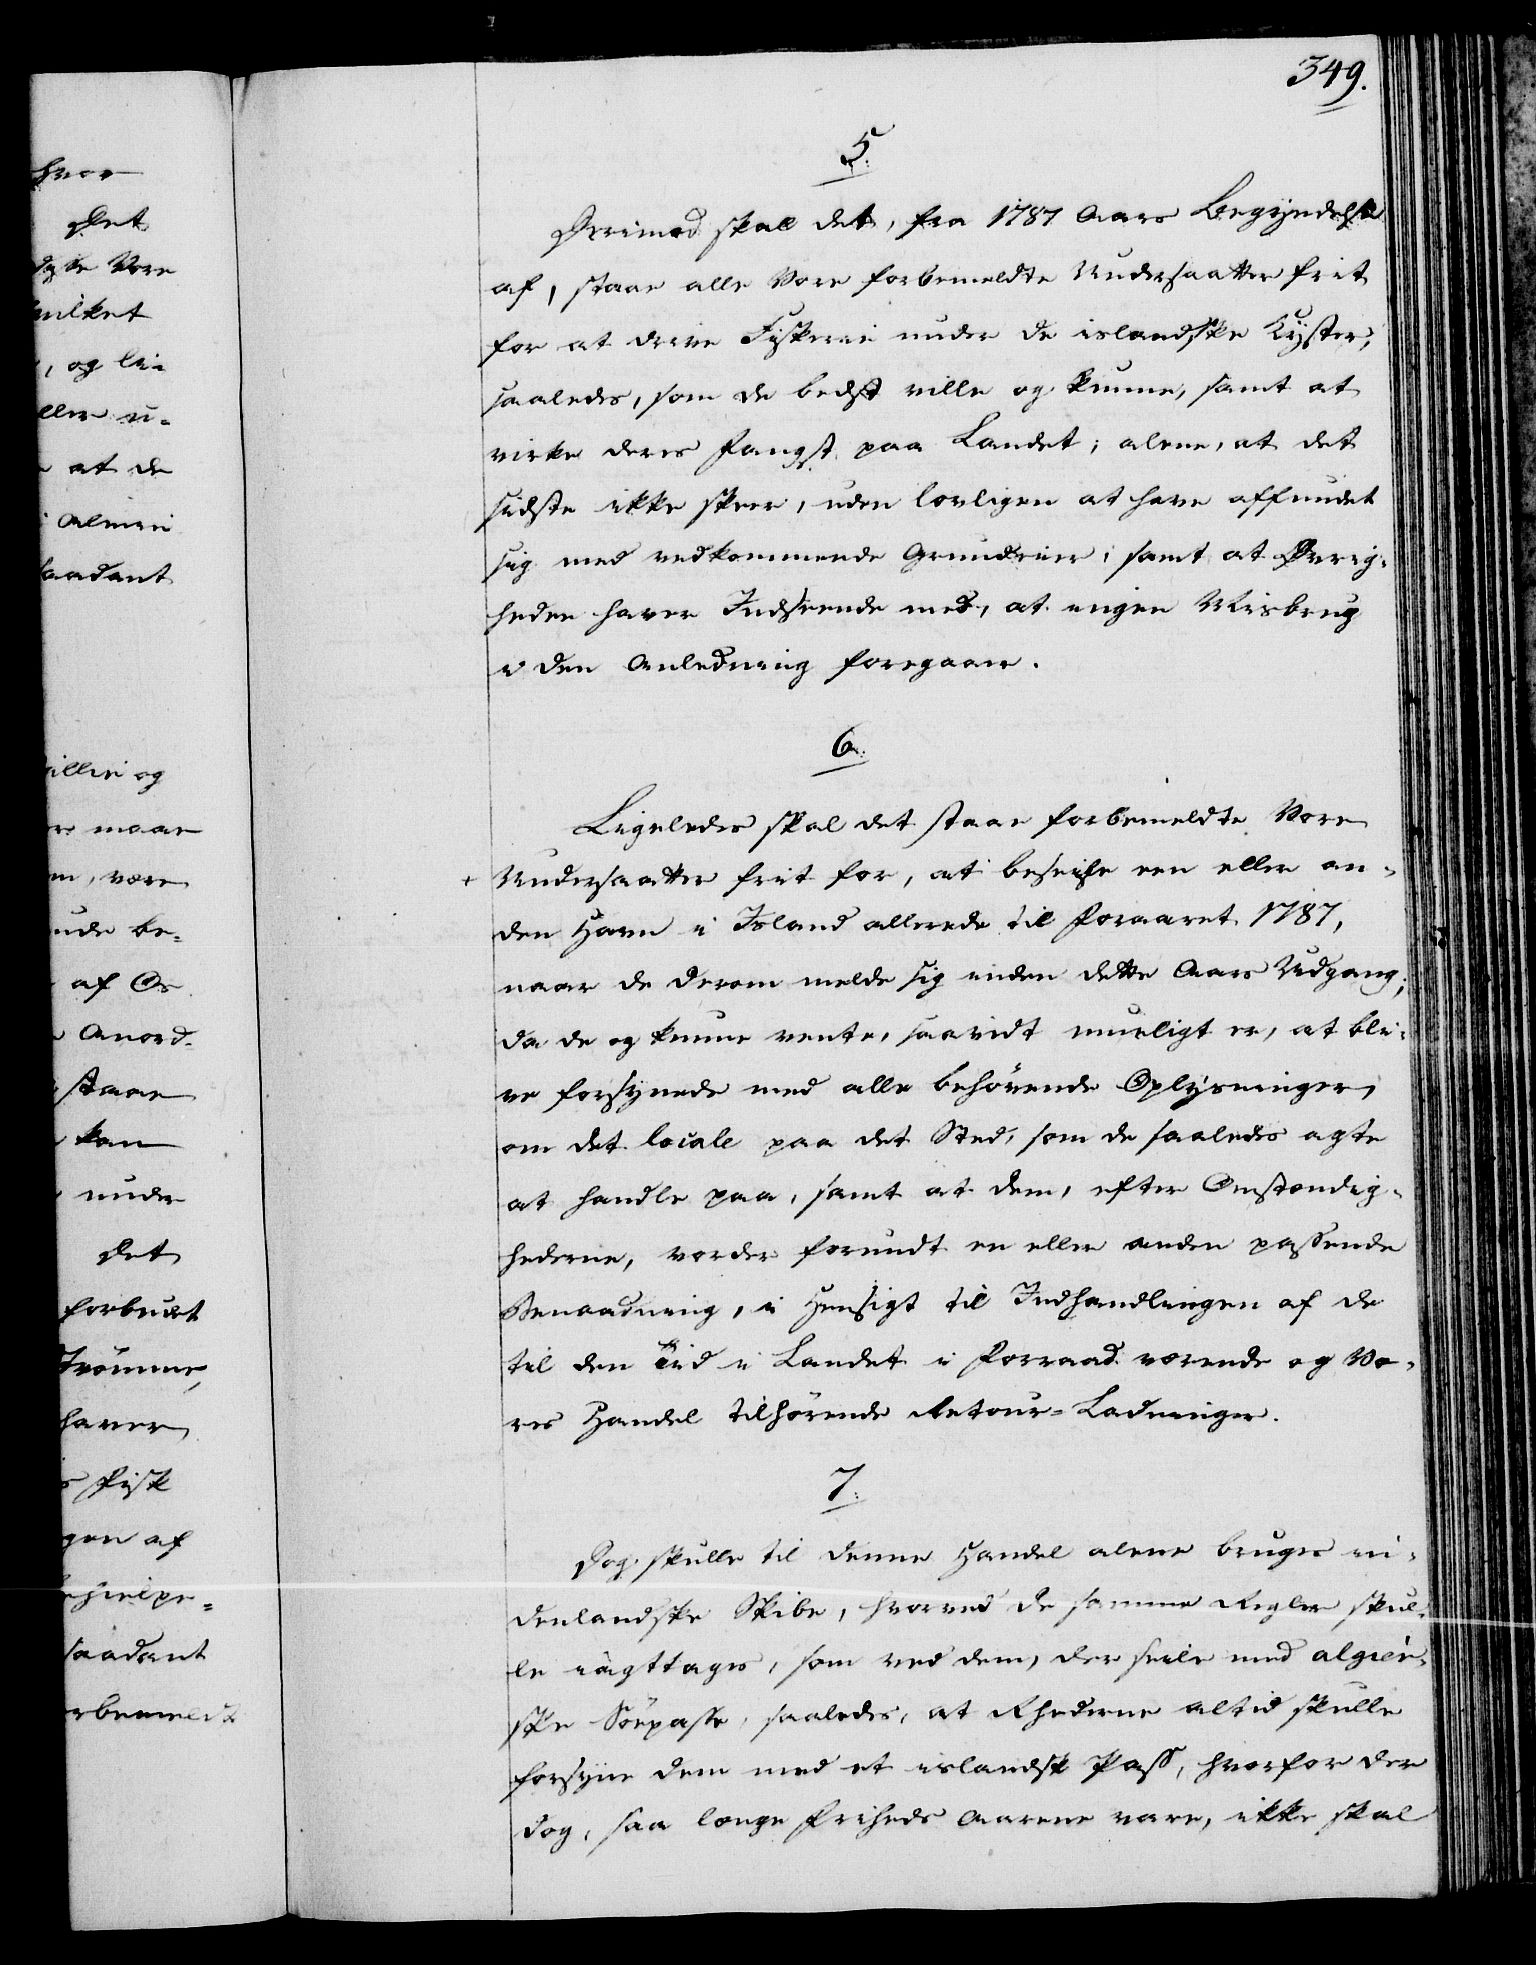 349.
5.
Derimod skal det, fra 1787 Aars Begyndelse
af, staae alle Vore forbemeldte Undersaatter frit
for at drive Fiskerie under de islandske Kyster,
saaledes, som de bedst ville og kunne, samt at
virke deres Fangst paa Landet; alene, at det
sidste ikke skeer, uden lovligen at have affundet
sig med vedkommende Grundeier; samt at Øvrig-
heden haver Indseende med, at ingen Misbrug
i den Anledning foregaaer.
6.
Ligeledes skal det staae forbemeldte Vore
+ Undersaatter frit for, at beseile een eller an-
den Havn i Island allerede til Foraaret 1787,
naar de derom melde sig inden dette Aars Udgang;
da de og kunne vente, saavidt mueligt er, at bli-
ve forsynede med alle behörende Oplysninger,
om det locale paa det Sted, som de saaledes agte
at handle paa, samt at dem, efter Omstændig-
hederne, vorder forundt en eller anden passende
Benaadning, i Hensigt til Indhandlingen af de
til den Tid i Landet i Forraad værende og Vo-
res Handel tilhörende Retour-Ladninger.
7.
Dog skulle til denne Handel alene bruges in-
denlandske Skibe, hvorved de samme Regler skul-
le iagttages, som ved dem, der seile med algier-
ske Söepasse, saaledes, at Rhederne altid skulle
forsyne dem med et islandsk Pass, hvorfor der
dog, saa længe Friheds Aarene vare, ikke skal
hvor
det
Vore
hvilket
, og lei
eller u-
at de
Almin
saadant
og
maae
, være
be-
af Os
Anord-
staae
kan
under
det
forbudt
haver
Fisk
af
saadant